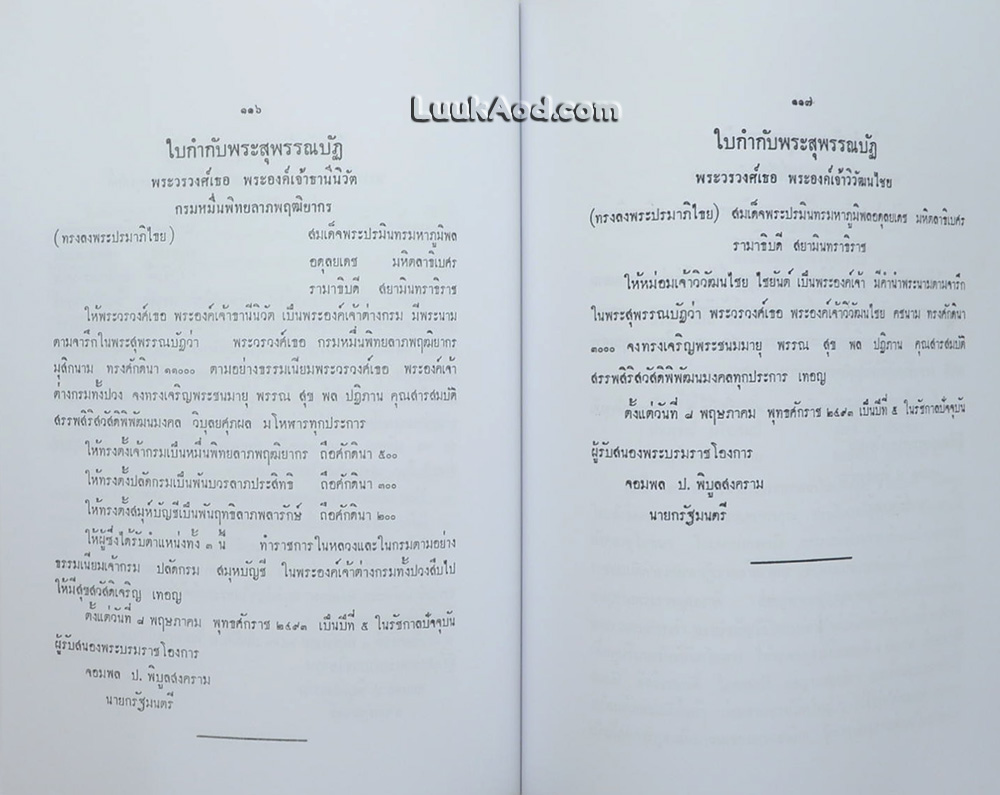 LuukAod.com
๑๑๖
ใบกำกับพระสุพรรณบัฏ
พระวรวงศ์เธอ พระองค์เจ้าธานีนิวัต
กรมหมื่นพิทยลาภพฤฒิยากร
(ทรงลงพระปรมาภิไธย) สมเด็จพระปรมินทรมหาภูมิพล
อดุลยเดช มหิตลาธิเบศร
รามาธิบดี สยามินทราธิราช
ให้พระวรวงศ์เธอ พระองค์เจ้าธานีนิวัต เป็นพระองค์เจ้าต่างกรม มีพระนาม
ตามจารึกในพระสุพรรณบัฏว่า พระวรวงศ์เธอ กรมหมื่นพิทยลาภพฤฒิยากร
มุสิกนาม ทรงศักดินา ๑๑๐๐๐ ตามอย่างธรรมเนียมพระวรวงศ์เธอ พระองค์เจ้า
ต่างกรมทั้งปวง จงทรงเจริญพระชนมายุ พรรณ สุข พล ปฏิภาน คุณสารสมบัติ
สรรพสิริสวัสดิพิพัฒนมงคล วิบุลยศุภผล มโหฬารทุกประการ
ให้ทรงตั้งเจ้ากรมเป็นหมื่นพิทยลาภพฤฒิยากร ถือศักดินา ๕๐๐
ให้ทรงตั้งปลัดกรมเป็นพันบวรลาภประสิทธิ ถือศักดินา ๓๐๐
ให้ทรงตั้งสมุห์บัญชีเป็นพันฤทธิลาภพลารักษ์ ถือศักดินา ๒๐๐
ให้ผู้ซึ่งได้รับตำแหน่งทั้ง ๓ นี้ ทำราชการในหลวงและในกรมตามอย่าง
ธรรมเนียมเจ้ากรม ปลัดกรม สมุหบัญชี ในพระองค์เจ้าต่างกรมทั้งปวงสืบไป
ให้มีสุขสวัสดิเจริญ เทอญ
ตั้งแต่วันที่ ๘ พฤษภาคม พุทธศักราช ๒๔๙๓ เป็นปีที่ ๕ ในรัชกาลปัจจุบัน
ผู้รับสนองพระบรมราชโองการ
จอมพล ป. พิบูลสงคราม
นายกรัฐมนตรี
๑๑๗
ใบกำกับพระสุพรรณบัฏ
พระวรวงศ์เธอ พระองค์เจ้าวิวัฒนไชย
(ทรงลงพระปรมาภิไธย) สมเด็จพระปรมินทรมหาภูมิพลอดุลยเดช มหิตลาธิเบศร
รามาธิบดี สยามินทราธิราช
ให้หม่อมเจ้าวิวัฒนไชย ไชยันต์ เป็นพระองค์เจ้า มีคำนำพระนามตามจารึก
ในพระสุพรรณบัฏว่า พระวรวงศ์เธอ พระองค์เจ้าวิวัฒนไชย คชนาม ทรงศักดินา
๓๐๐๐ จงทรงเจริญพระชนมายุ พรรณ สุข พล ปฏิภาน คุณสารสมบัติ
สรรพสิริสวัสดิพิพัฒนมงคลทุกประการ เทอญ
ตั้งแต่วันที่ ๘ พฤษภาคม พุทธศักราช ๒๔๙๓ เป็นปีที่ ๕ ในรัชกาลปัจจุบัน
ผู้รับสนองพระบรมราชโองการ
จอมพล ป. พิบูลสงคราม
นายกรัฐมนตรี